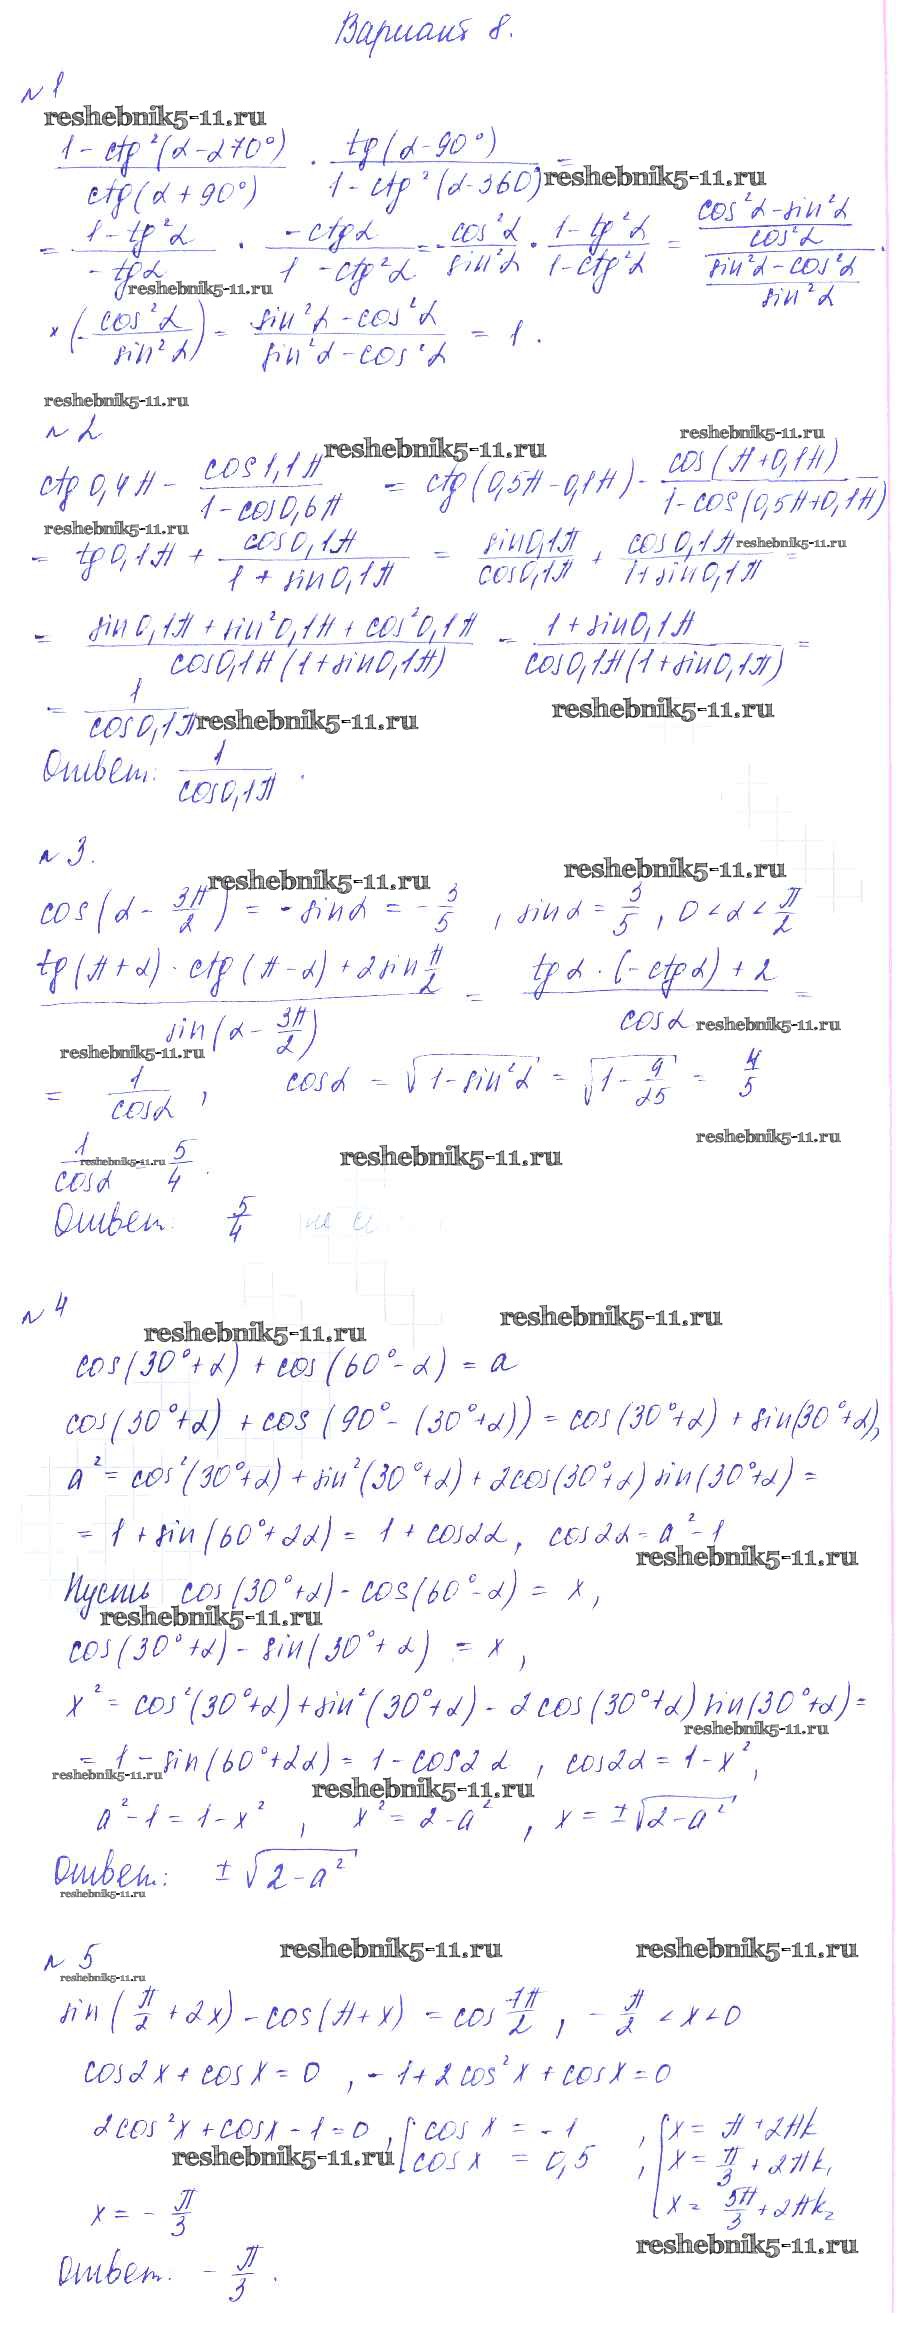 Вариант 8.
№1
reshebnik5-11.ru
(1 - ctg²(α-270°))/(ctg(α+90°)) · (tg(α-90°))/(1 - ctg²(α-360)) = reshebnik5-11.ru
= (1 - tg²α)/(-tgα) · (-ctgα)/(1 - ctg²α) = - cos²α/sin²α · (1 - tg²α)/(1 - ctg²α) = ((cos²α - sin²α)/cos²α)/((sin²α - cos²α)/sin²α) ·
reshebnik5-11.ru
× (- cos²α/sin²α) = (sin²α - cos²α)/(sin²α - cos²α) = 1.
reshebnik5-11.ru
№2
reshebnik5-11.ru reshebnik5-11.ru
ctg 0,4π - cos1,1π/(1 - cos0,6π) = ctg(0,5π - 0,1π) - cos(π+0,1π)/(1 - cos(0,5π+0,1π)) =
reshebnik5-11.ru
= tg0,1π + cos0,1π/(1 + sin0,1π) = sin0,1π/cos0,1π + cos0,1π/(1+sin0,1π) = reshebnik5-11.ru
= (sin0,1π + sin²0,1π + cos²0,1π)/(cos0,1π(1+sin0,1π)) = (1 + sin0,1π)/(cos0,1π(1+sin0,1π)) =
= 1/cos0,1π reshebnik5-11.ru reshebnik5-11.ru
Ответ: 1/cos0,1π.
№3.
reshebnik5-11.ru reshebnik5-11.ru
cos(α - 3π/2) = -sinα = -3/5, sinα = 3/5, 0<α<π/2
(tg(π+α)·ctg(π-α)+2sin π/2)/(sin(α - 3π/2)) = (tgα·(-ctgα)+2)/cosα =
reshebnik5-11.ru reshebnik5-11.ru
= 1/cosα, cosα = √(1-sin²α) = √(1 - 9/25) = 4/5
reshebnik5-11.ru
1/cosα reshebnik5-11.ru 5/4. reshebnik5-11.ru
Ответ: 5/4
№4
reshebnik5-11.ru reshebnik5-11.ru
cos(30°+α) + cos(60°-α) = a
cos(30°+α) + cos(90°-(30°+α)) = cos(30°+α) + sin(30°+α),
a² = cos²(30°+α) + sin²(30°+α) + 2cos(30°+α)sin(30°+α) =
= 1 + sin(60°+2α) = 1 + cos2α, cos2α = a²-1
reshebnik5-11.ru
Пусть cos(30°+α) - cos(60°-α) = x,
reshebnik5-11.ru
cos(30°+α) - sin(30°+α) = x,
x² = cos²(30°+α)+sin²(30°+α) - 2cos(30°+α)sin(30°+α) =
reshebnik5-11.ru
= 1 - sin(60°+2α) = 1 - cos2α, cos2α = 1-x²,
reshebnik5-11.ru reshebnik5-11.ru
a²-1 = 1-x², x² = 2-a², x = ±√(2-a²)
Ответ: ±√(2-a²)
reshebnik5-11.ru
№5 reshebnik5-11.ru reshebnik5-11.ru
reshebnik5-11.ru
sin(π/2 + 2x) - cos(π+x) = cos 7π/2, -π/2 < x < 0
cos2x + cosx = 0, -1+2cos²x + cosx = 0
2cos²x + cosx - 1 = 0, [cos x = -1, [x = π + 2πk
reshebnik5-11.ru [cos x = 0,5, x = π/3 + 2πk₁
x = -π/3 x = 5π/3 + 2πk₂
reshebnik5-11.ru
Ответ. -π/3.